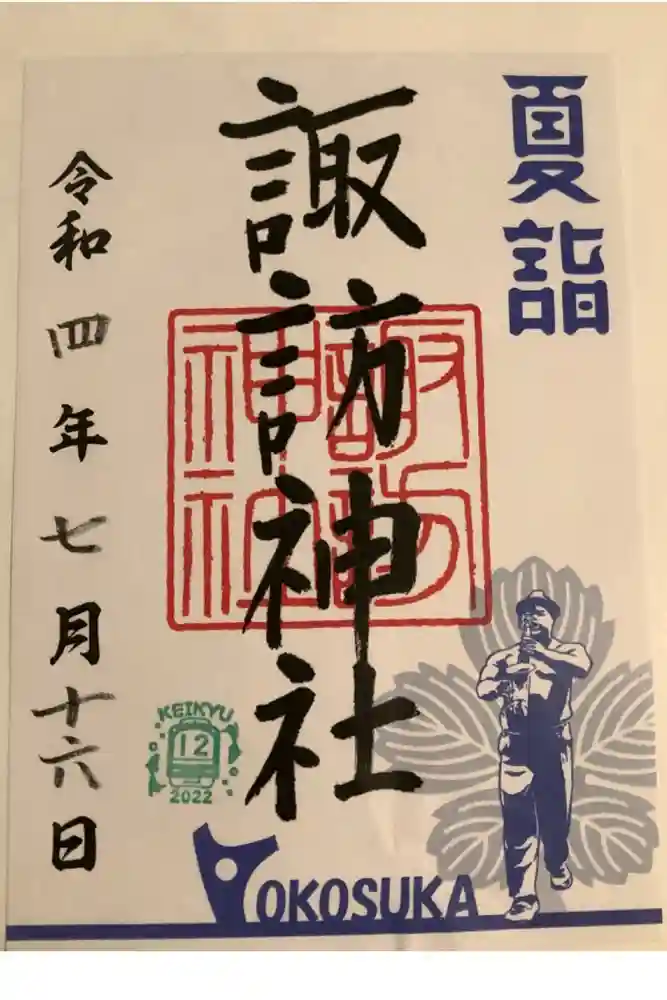 夏詣
諏訪神社
諏訪
神社
令和四年七月十六日
KEIKYU
12
2022
YOKOSUKA